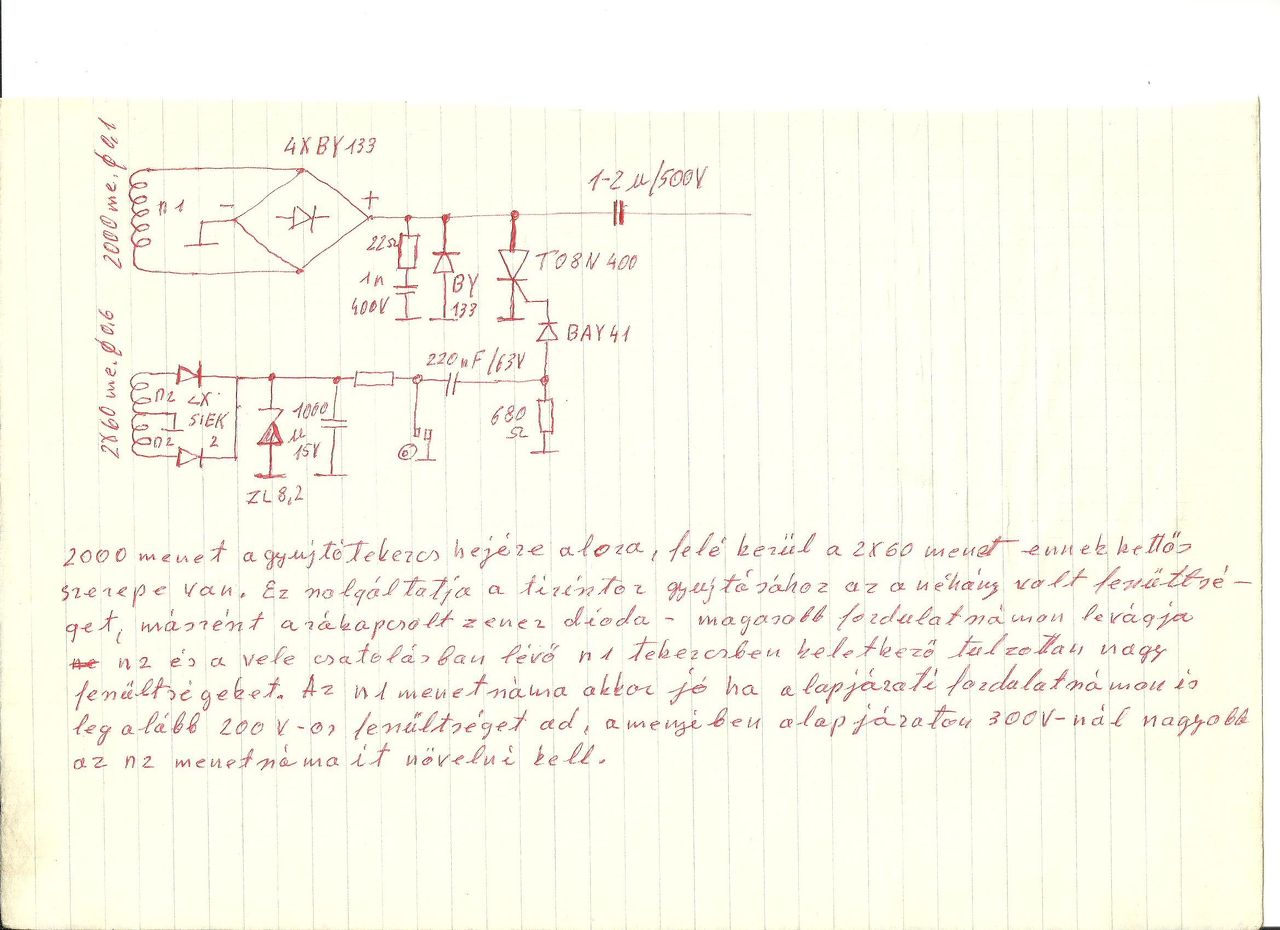 4XBY133
2000 me. φ0,1
n1
-
+
1-2 µ/500V
22Ω
1n
400V
BY
133
T08N400
BAY41
2X60 me. φ0,6
n2
2X
SiEK
2
n2
1000
µ
15V
ZL8,2
220nF/63V
680
Ω
2000 menet a gyujtótekercs hejére alora, felé kerül a 2X60 menet ennek kettős
szerepe van. Ez solgáltatja a tiristor gyujtásához az a néhány volt fesültsé-
get, másrést a rákapcsolt zener dióda - magasobb fordulatsámon levágja
n2 és a vele csatolásban lévő n1 tekercsben keletkező tulzottan nagy
fesültségeket. Az n1 menetsáma akkor jó ha alapjárati fordalatsámon is
legalább 200V-os fesültséget ad, amenyiben alapjáraton 300V-nál nagyobb
az n2 menetsámait növelni kell.